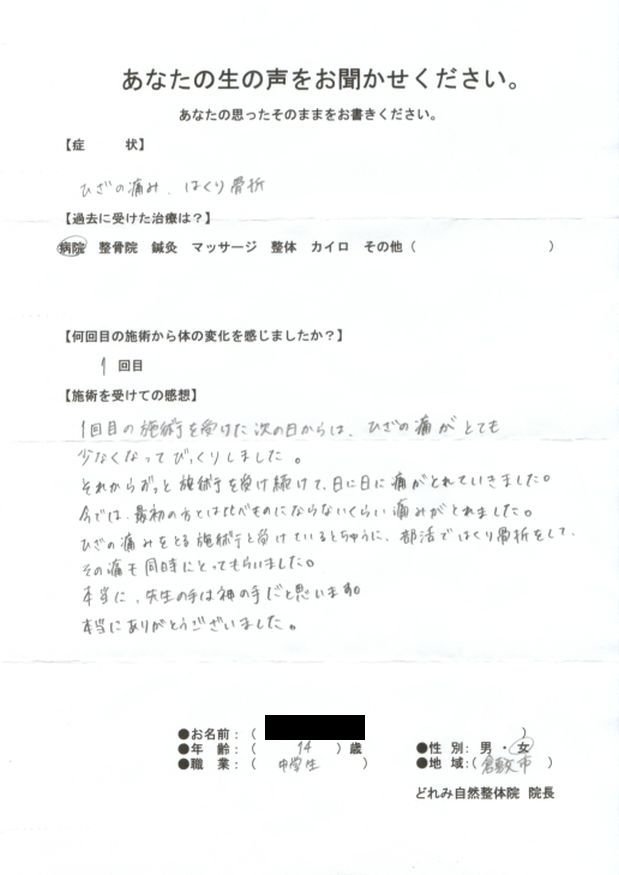 あなたの生の声をお聞かせください。
あなたの思ったそのままをお書きください。
【症　　状】
ひざの痛み、はくり骨折
【過去に受けた治療は？】
病院　整骨院　鍼灸　マッサージ　整体　カイロ　その他（　　　　　　　　）
【何回目の施術から体の変化を感じましたか？】
1 回目
【施術を受けての感想】
1回目の施術を受けた次の日からは、ひざの痛がとても
少なくなってびっくりしました。
それからずっと施術を受け続けて、日に日に痛がとれていきました。
今では、最初の方とは比べものにならないくらい痛みがとれました。
ひざの痛みをとる施術と受けているとちゅうに、部活ではくり骨折をして、
その痛も同時にとってもらいました。
本当に、先生の手は神の手だと思います。
本当にありがとうございました。
●お名前：（　　　　　　　　）
●年　齢：（　14　）歳　●性　別：男・女
●職　業：（　中学生　）　●地　域：（倉敷市）
どれみ自然整体院　院長